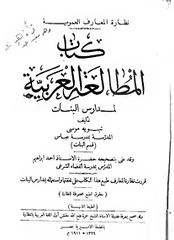 نظارة المعارف العمومية
كتاب
المطالعة العربية
لمدارس البنات
تأليف
نبوية موسى
المدرسة بمدرسة عباس
(قسم البنات)
وقد عنى بتصحيحه حضرة الاستاذ احمد ابراهيم
المدرس بمدرسة القضاء الشرعى
قررت نظارة المعارف طبع هذا الكتاب على نفقتها واستعماله بمدارس البنات
(حقوق الطبع محفوظة للنظارة)